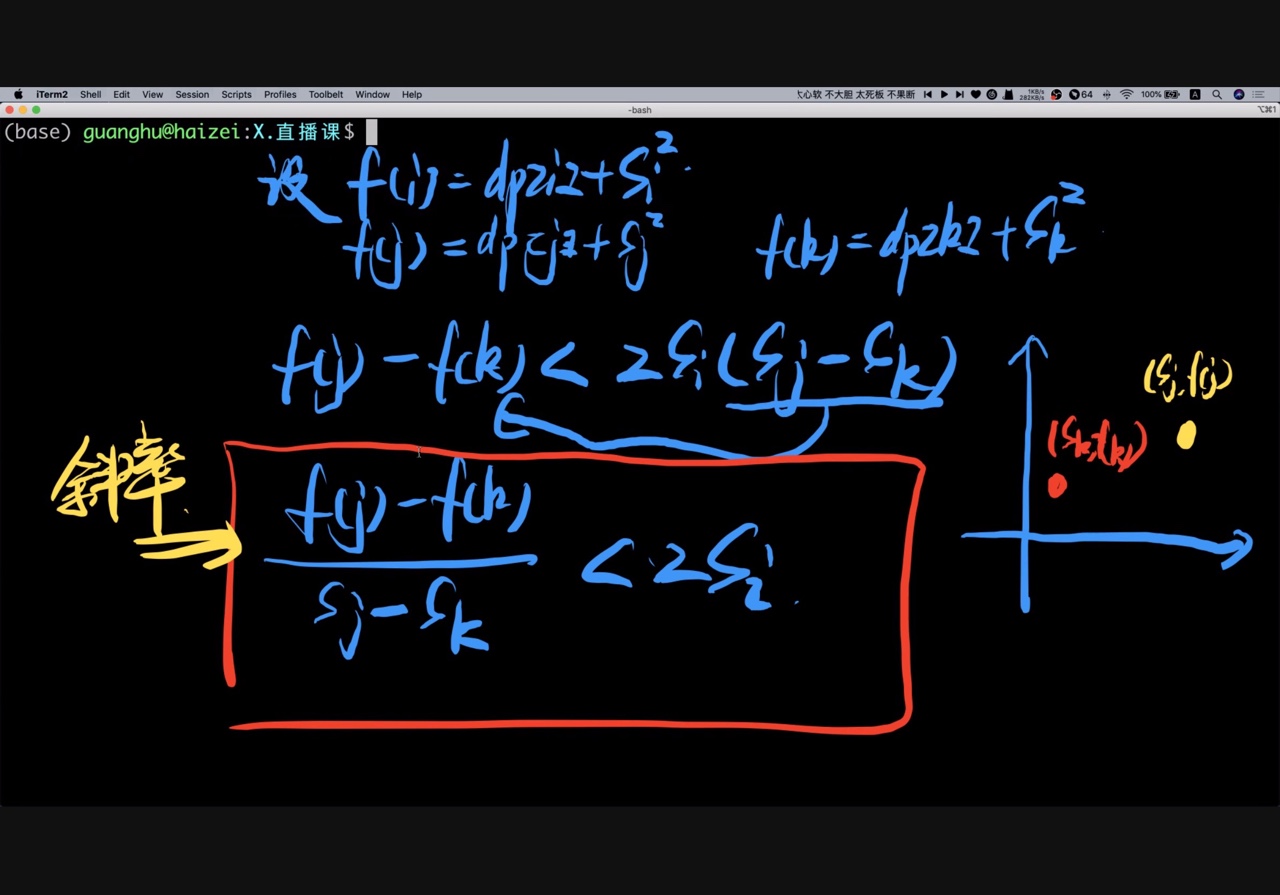 iTerm2 Shell Edit View Session Scripts Profiles Toolbelt Window Help 心软 不大胆 太死板 不果断 1KB/s 282KB/s 64 100% A
-bash ⌥⌘1
(base) guanghu@haizei:X.直播课$
设 f(i) = dp[i] + Si²
f(j) = dp[j] + Sj² f(k) = dp[k] + Sk²
f(j) - f(k) < 2Si(Sj - Sk)
(Sj, f(j))
(Sk, f(k))
斜率
f(j) - f(k)
Sj - Sk
< 2Si